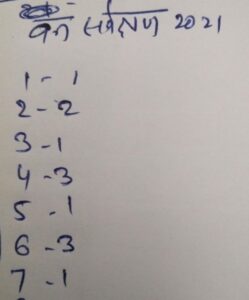 वन 2021
1 - 1
2 - 2
3 - 1
4 - 3
5 - 1
6 - 3
7 - 1